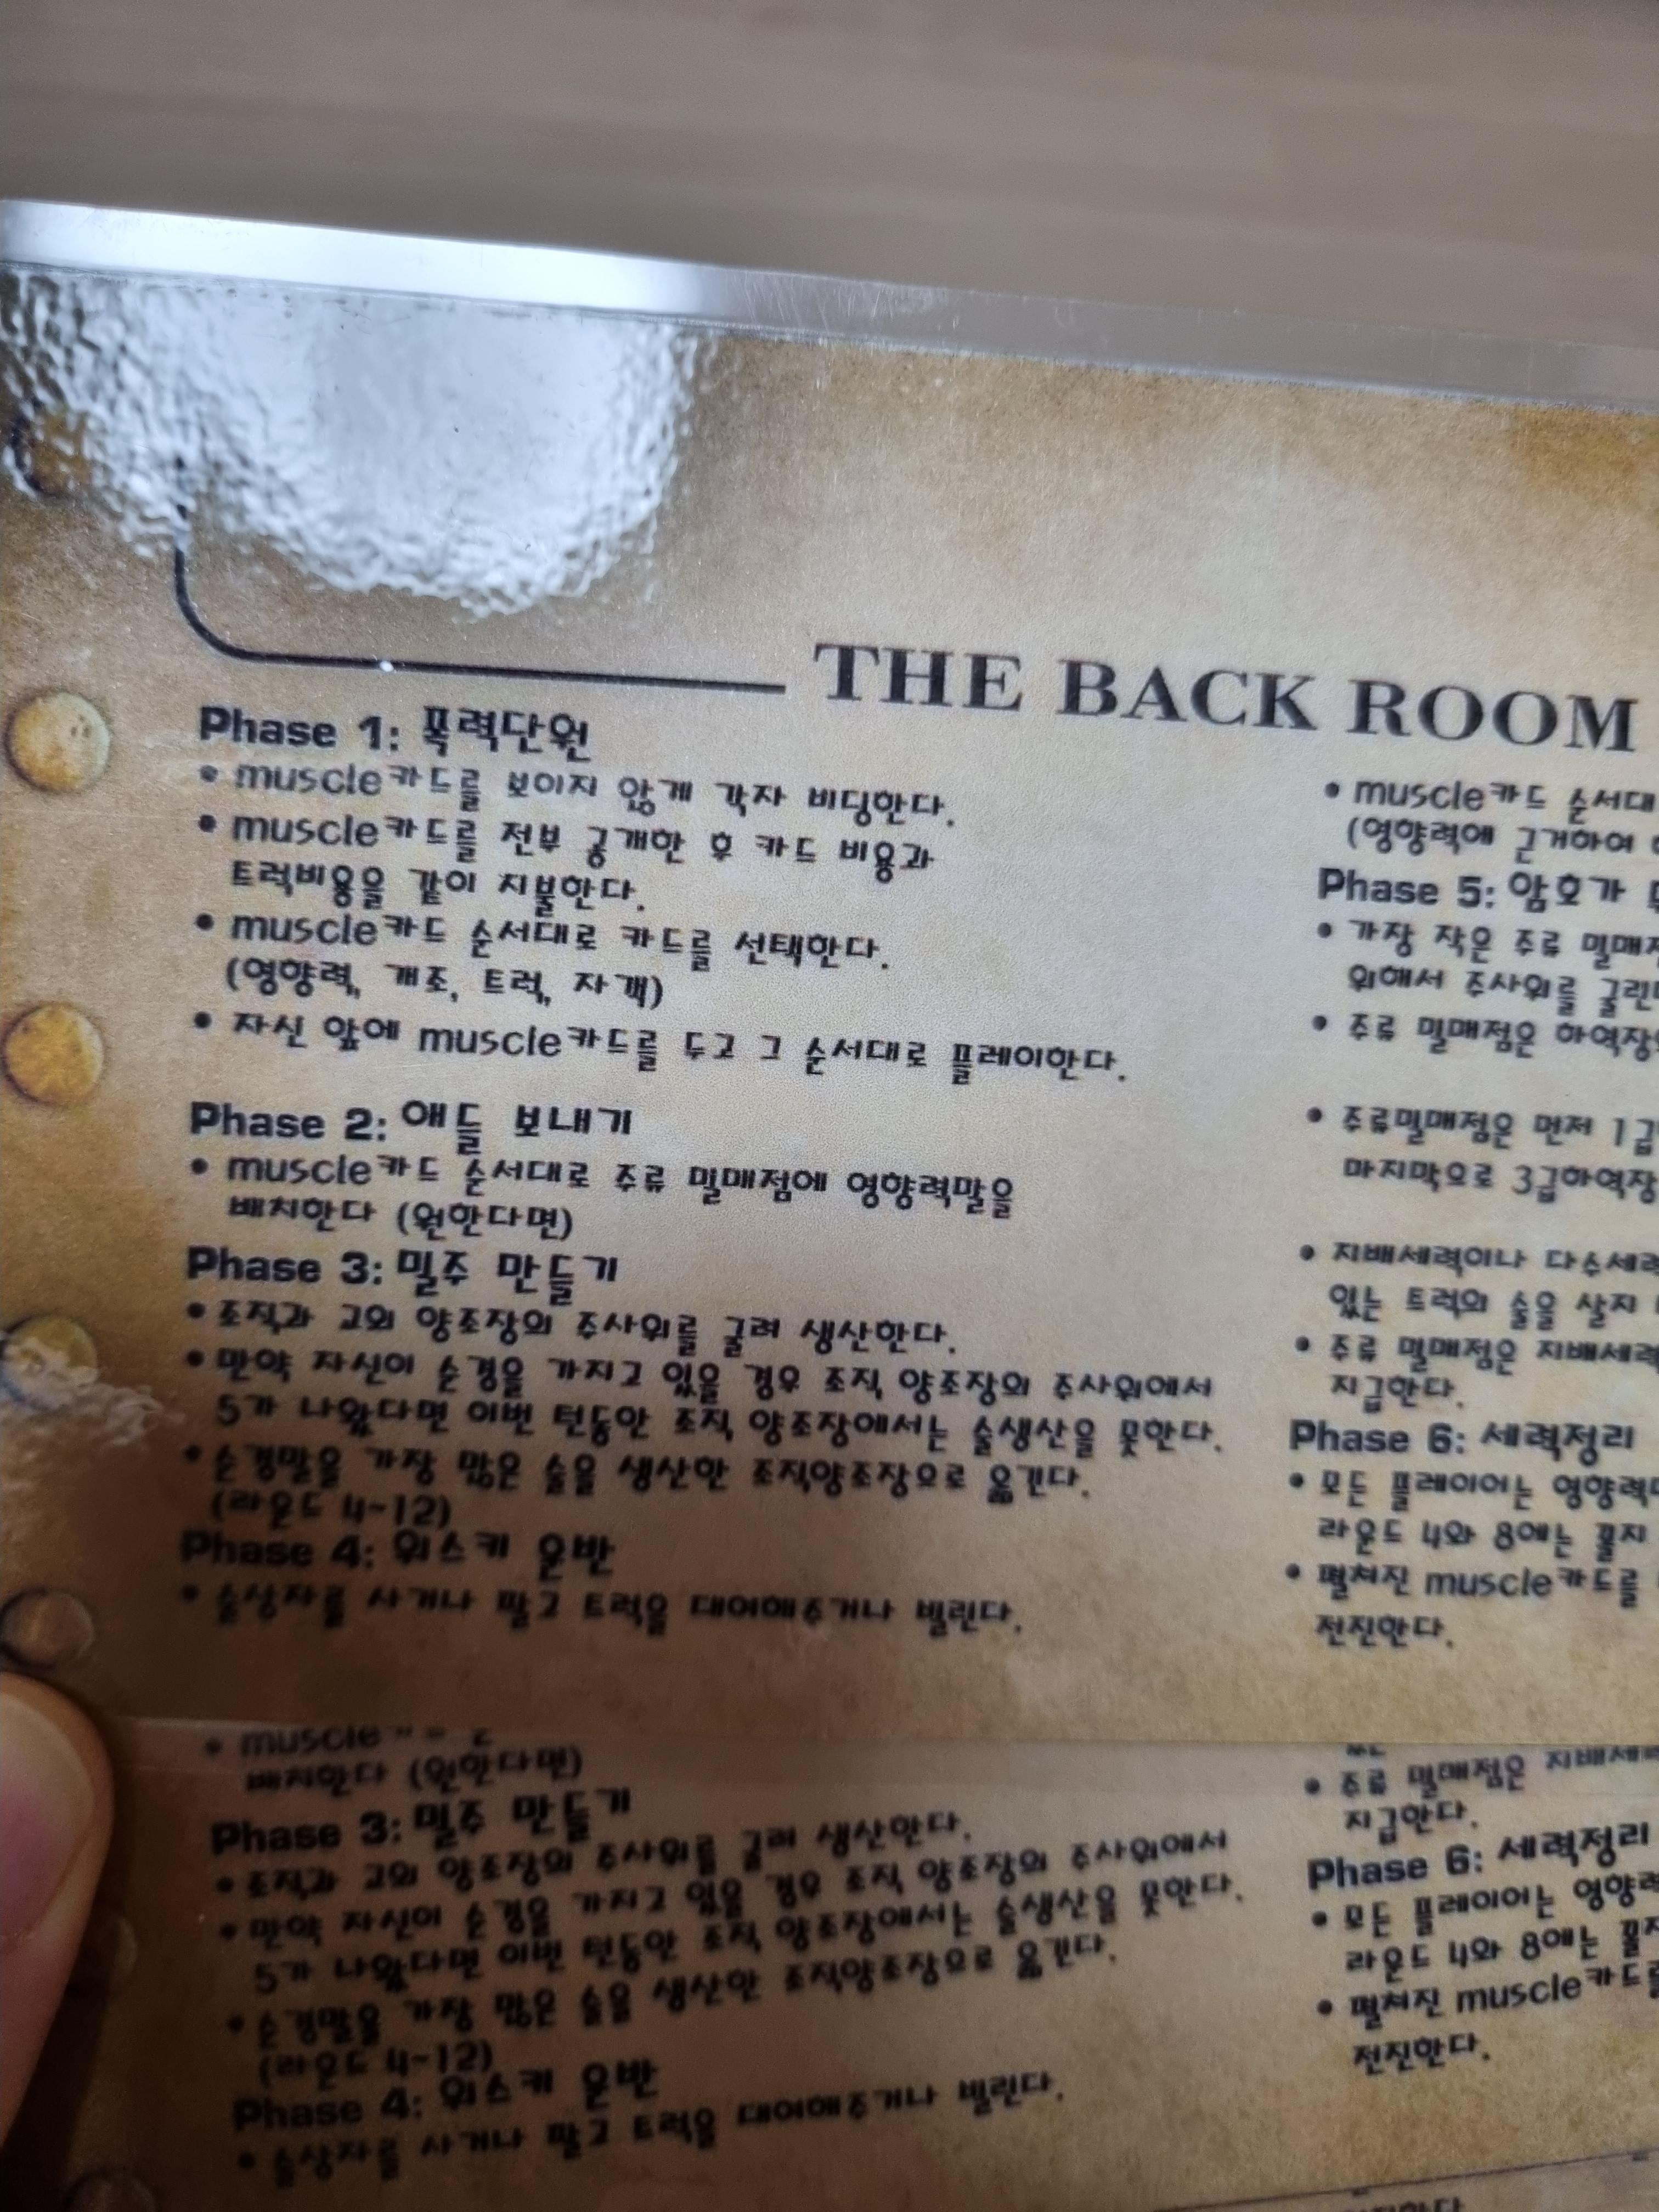 THE BACK ROOM
Phase 1: 폭력단원
• muscle카드를 보이지 않게 각자 비딩한다.
• muscle카드를 전부 공개한 후 카드 비용과
트럭비용을 같이 지불한다.
• muscle카드 순서대로 카드를 선택한다.
(영향력, 개조, 트럭, 자객)
• 자신 앞에 muscle카드를 두고 그 순서대로 플레이한다.
Phase 2: 애들 보내기
• muscle카드 순서대로 주류 밀매점에 영향력말을
배치한다 (원한다면)
Phase 3: 밀주 만들기
• 조직과 교외 양조장의 주사위를 굴려 생산한다.
• 만약 자신이 순경을 가지고 있을 경우 조직 양조장의 주사위에서
5가 나왔다면 이번 턴동안 조직 양조장에서는 술생산을 못한다.
• 순경말을 가장 많은 술을 생산한 조직양조장으로 옮긴다.
(라운드 4~12)
Phase 4: 위스키 운반
• 술상자를 사거나 팔고 트럭을 대여해주거나 빌린다.
• muscle카드 순서대
(영향력에 근거하여
Phase 5: 암호가
• 가장 작은 주류 밀매점
위해서 주사위를 굴린
• 주류 밀매점은 하역장
• 주류밀매점은 먼저 1급
마지막으로 3급하역장
• 지배세력이나 다수세력
있는 트럭의 술을 살지
• 주류 밀매점은 지배세력
지급한다.
Phase 6: 세력정리
• 모든 플레이어는 영향력
라운드 4와 8에는 풀지
• 펼쳐진 muscle카드를
전진한다.
• muscle
배치한다 (원한다면)
Phase 3: 밀주 만들기
• 조직과 교외 양조장의 주사위를 굴려 생산한다.
• 만약 자신이 순경을 가지고 있을 경우 조직 양조장의 주사위에서
5가 나왔다면 이번 턴동안 조직 양조장에서는 술생산을 못한다.
• 순경말을 가장 많은 술을 생산한 조직양조장으로 옮긴다.
(라운드 4~12)
Phase 4: 위스키 운반
• 술상자를 사거나 팔고 트럭을 대여해주거나 빌린다.
• 주류 밀매점은 지배세력
지급한다.
Phase 6: 세력정리
• 모든 플레이어는 영향력
라운드 4와 8에는 풀지
• 펼쳐진 muscle카드를
전진한다.